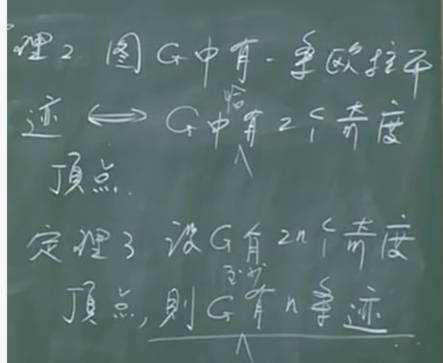 理2 图G中有一条欧拉开
迹 ⟷ G中恰有2个奇度
頂点.
定理3 设G有2n个奇度
頂点,則G至少有n条迹